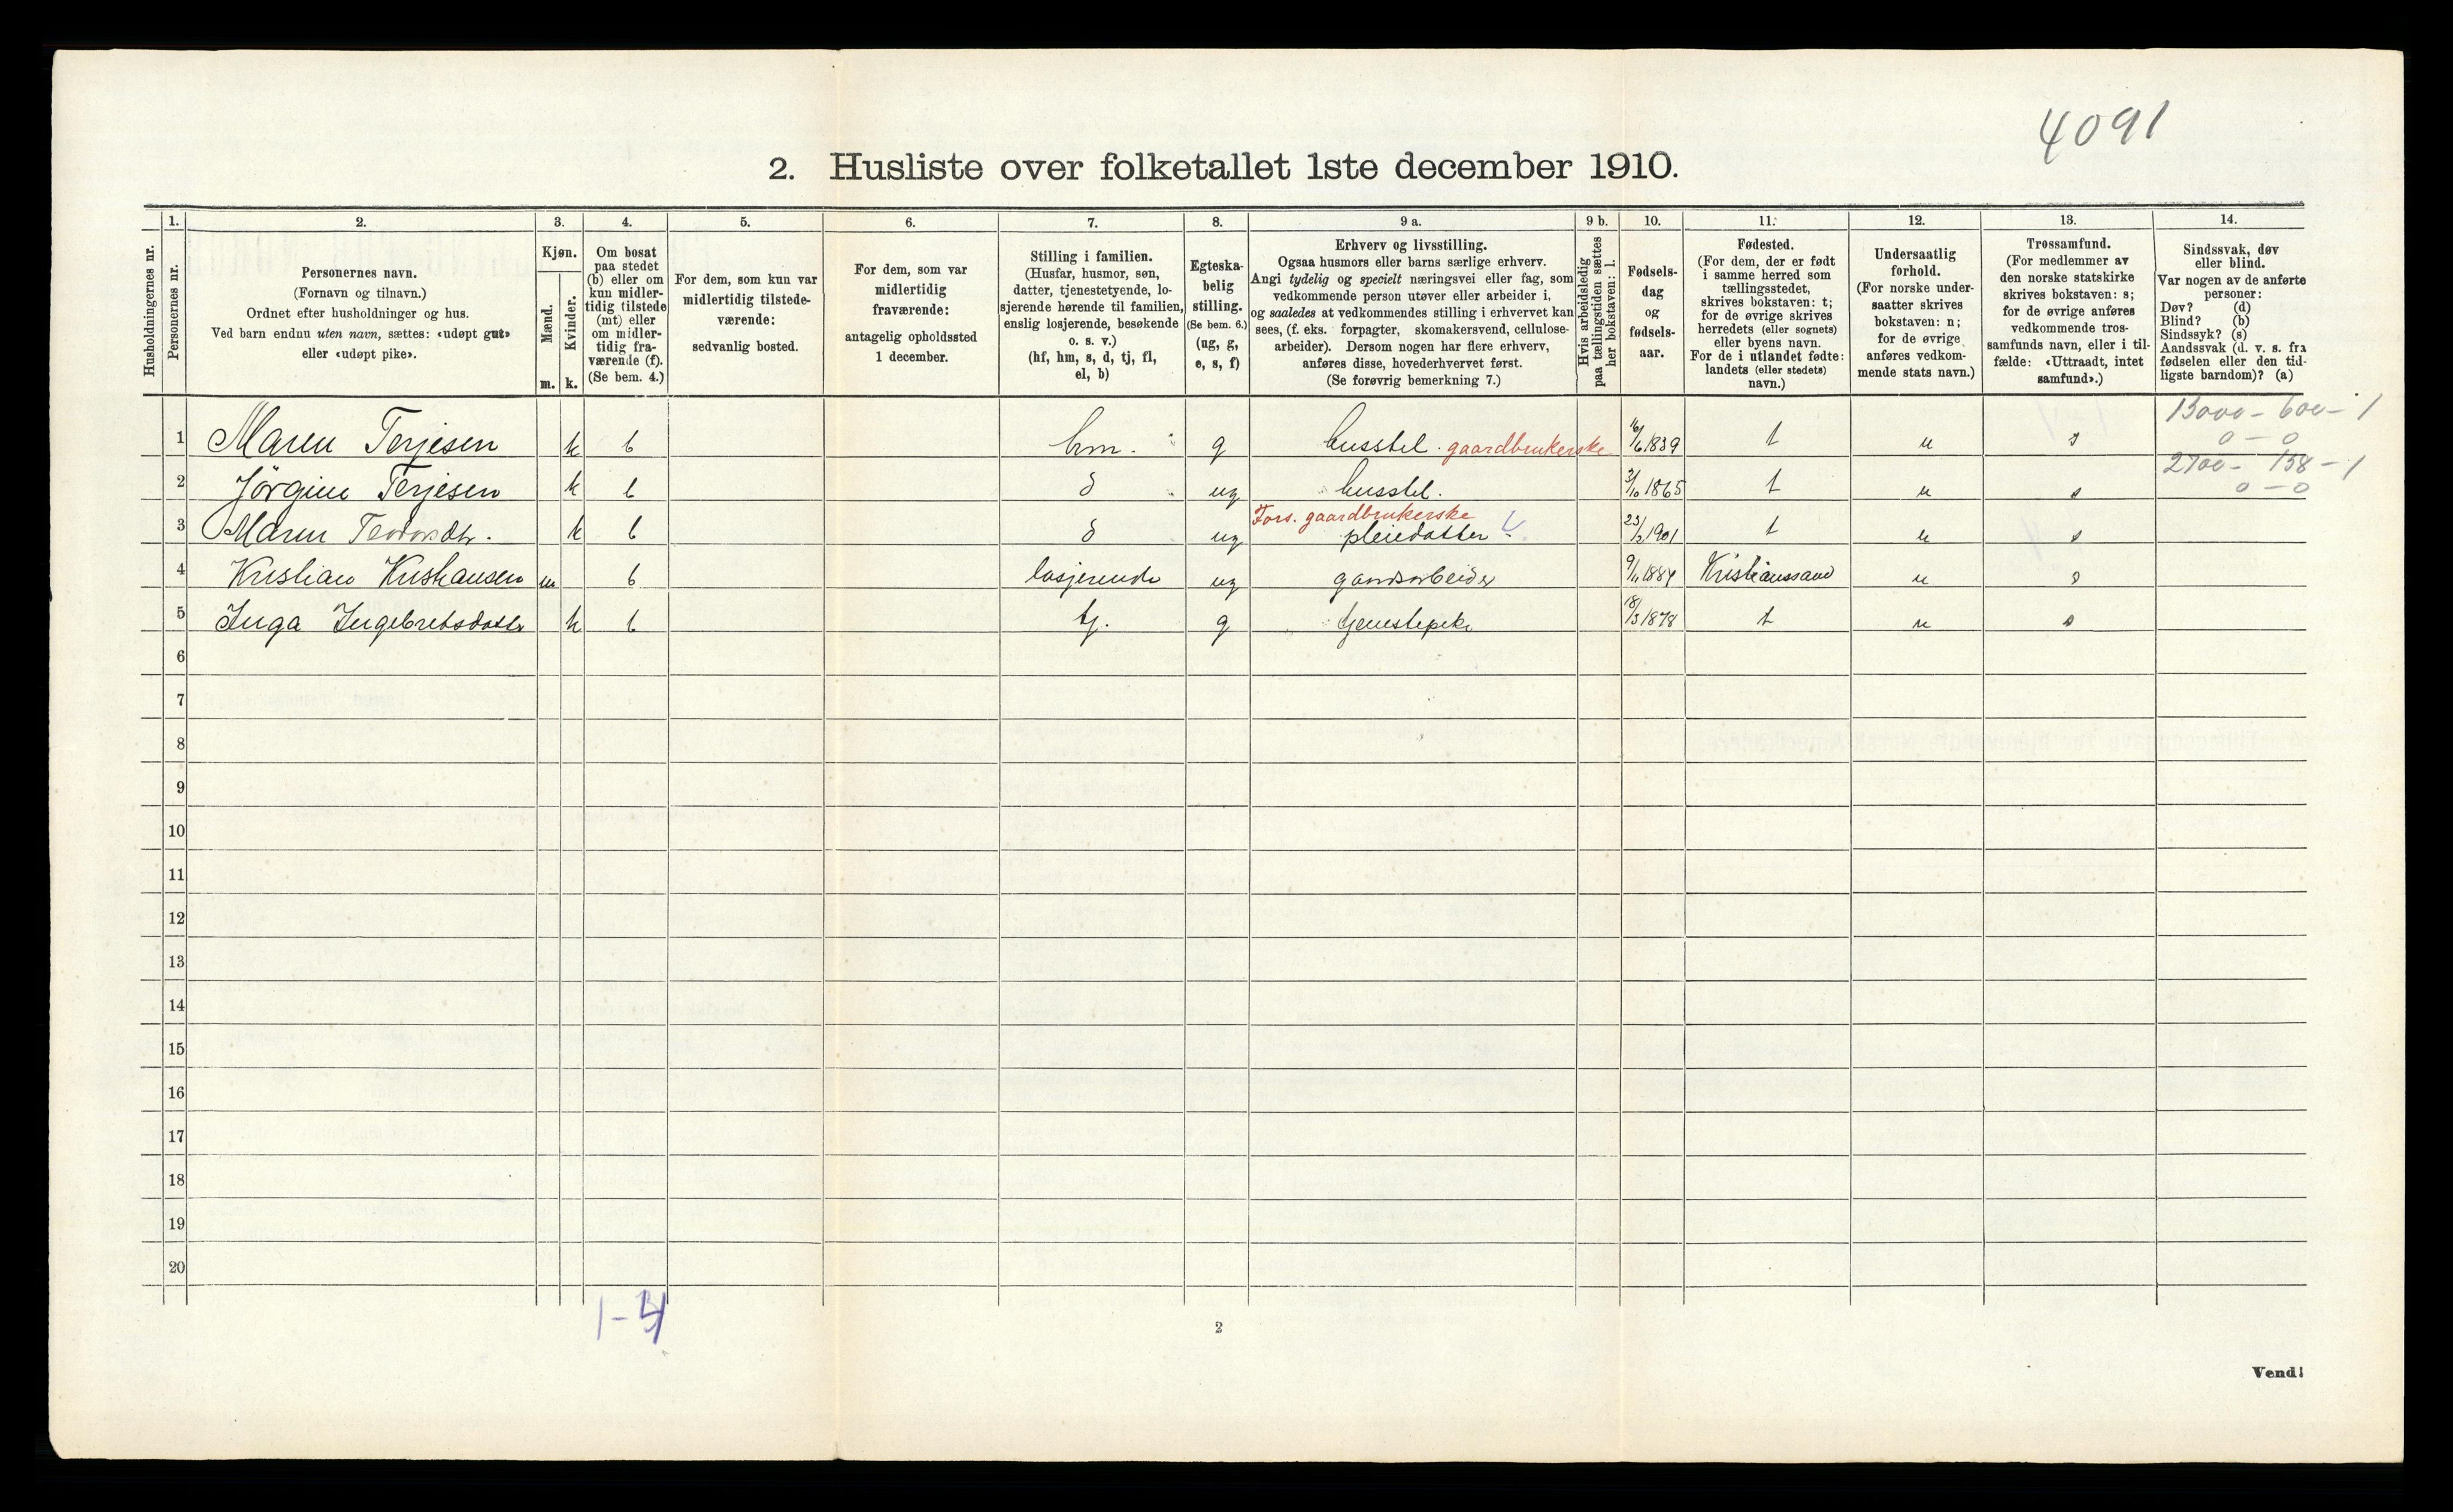 4091
2. Husliste over folketallet 1ste december 1910.
Husholdningernes nr.
1.
Personernes nr.
2.
Personernes navn.
(Fornavn og tilnavn.)
Ordnet efter husholdninger og hus.
Ved barn endnu uten navn, sættes: «udøpt gut»
eller «udøpt pike».
3.
Kjøn.
Mænd.
Kvinder.
m. k.
4.
Om bosat
paa stedet
(b) eller om
kun midler-
tidig tilstede
(mt) eller
om midler-
tidig fra-
værende (f).
(Se bem. 4.)
5.
For dem, som kun var
midlertidig tilstede-
værende:
sedvanlig bosted.
6.
For dem, som var
midlertidig
fraværende:
antagelig opholdssted
1 december.
7.
Stilling i familien.
(Husfar, husmor, søn,
datter, tjenestetyende, lo-
sjerende hørende til familien,
enslig losjerende, besøkende
o. s. v.)
(hf, hm, s, d, tj, fl,
el, b)
8.
Egteska-
belig
stilling.
(Se bem. 6.)
(ug, g,
e, s, f)
9 a.
Erhverv og livsstilling.
Ogsaa husmors eller barns særlige erhverv.
Angi tydelig og specielt næringsvei eller fag, som
vedkommende person utøver eller arbeider i,
og saaledes at vedkommendes stilling i erhvervet kan
sees, (f. eks. forpagter, skomakersvend, cellulose-
arbeider). Dersom nogen har flere erhverv,
anføres disse, hovederhvervet først.
(Se forøvrig bemerkning 7.)
9 b.
Hvis arbeidsledig
paa tællingstiden sættes
her bokstaven: l.
10.
Fødsels-
dag
og
fødsels-
aar.
11.
Fødested.
(For dem, der er født
i samme herred som
tællingsstedet,
skrives bokstaven: t;
for de øvrige skrives
herredets (eller sognets)
eller byens navn.
For de i utlandet fødte:
landets (eller stedets)
navn.)
12.
Undersaatlig
forhold.
(For norske under-
saatter skrives
bokstaven: n;
for de øvrige
anføres vedkom-
mende stats navn.)
13.
Trossamfund.
(For medlemmer av
den norske statskirke
skrives bokstaven: s;
for de øvrige anføres
vedkommende tros-
samfunds navn, eller i til-
fælde: «Uttraadt, intet
samfund».)
14.
Sindssvak, døv
eller blind.
Var nogen av de anførte
personer:
Døv? (d)
Blind? (b)
Sindssyk? (s)
Aandssvak (d. v. s. fra
fødselen eller den tid-
ligste barndom)? (a)
13000 - 600 - 1
1 Maren Terjesen k b hm. g husstel. gaardbrukerske 16/6 1839 t n s 0 - 0
2700 - 158 - 1
2 Jörgine Terjesen k b d ug husstel. 3/10 1865 t n s 0 - 0
Fors. gaardbrukerske
3 Maren Teodorsdtr. k b d ug pleiedatter 23/2 1901 t n s
4 Kristian Kristiansen m b losjerende ug gaardsarbeider 9/11 1884 Kristianssand n s
5 Inga Ingebretsdatter k b tj. g tjenestepike 18/3 1878 t n s
6
7
8
9
10
11
12
13
14
15
16
17
18
19
20
1-4
2
Vend!